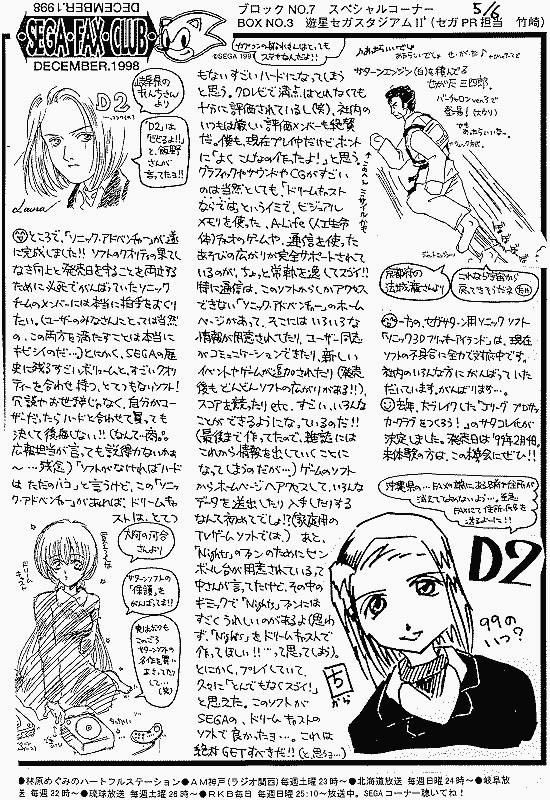 ブロック NO.7 スペシャルコーナー 5/6
BOX NO.3 遊星セガスタジアムⅡ'(セガ PR 担当 竹崎)
DECEMBER.1998
・SEGA・FAX・CLUB・
DECEMBER.1998
©SEGA 199
D2
「D2」は
「でるよ!!」
と、飯野
さんが
言ってたヨ!!
Laura
ところで、「ソニック・アドベンチャー」が遂
に完成しました!! ソフトのクオリティの果てし
なき向上と発売日を守ることを両立する
ために必死でがんばっていたソニック
チームのメンバーには本当に拍手をおくり
たい。(ユーザーのみなさんにとっては当然
の、この両方を満たすことは本当に
キビシイのだ…)とにかく、SEGAの歴
史に残るすごいボリュームと、すごいクオリ
ティーを合わせ持つ、とてつもないソフト!
冗談やお世辞じゃなく、自分がユー
ザーだったらハードと合わせて買っても
決して後悔しない!!
広報担当が言っても説得力ないかぁ
〜…残念)「ソフトがなければハードは
ただのハコ」と言うけど、この「ソニッ
ク・アドベンチャー」があれば、ドリームキャ
ストは、とてつ
もない、すごいハードになってしまう
と思う。クロレビで満点はとれなくても
十分に評価されているし(笑)、社内の
いつもは厳しい評価メンバーも絶賛
だ。僕も、現在プレイ中だけど、ホント
に「よくこんなの作ったよ!」と思う。
グラフィックやサウンドやCGがすごい
のは当然としても「ドリームキャスト
ならでは」というイミで、ビジュアル
メモリを使った、A-Life(人工生命
体)チャオのゲームや、通信を使った
あそびの広がりが完全サポートされて
いるのが、ちょっと常軌を逸してスゴイ!!
特に通信は、このソフトからしかアクセス
できない「ソニック・アドベンチャー」のホーム
ページがあって、そこにはいろいろな
情報が用意されてたり、ユーザー同志
がコミュニケーションできたり、新しい
イベントやゲームが追加されたり(発売
後もどんどんソフトの広がりがある!!)、
スコアを競ったり etc. すごい、いろんな
ことができるようになっているのだ!!
(最後まで作ってたので、雑誌には
これから情報を出していくことに
なってしまうのだが…) ゲームのソフト
からホームページへアクセスして、いろんな
データを送出したり入手したりする
なんて初めてでしょ!?(家庭用の
TVゲームソフトでは。) あと、
「Nights」のファンのためにピン
ボール台が用意されている、って
中さんが言ってたけど、その中の
ギミックで「Nights」ファンには
すごくうれしいのがあるよ(思わ
ず、「Nights」をドリームキャストで
作ってほしい!!…って思ってしまう)。
とにかく、プレイしていて、
久々に「とんでもなくスゴイ!」
と思えた。このソフトが
SEGAの、ドリームキャストの
ソフトで良かったョ…。これは
絶対GETすべきだ!! (と思うョ…)
サターンエンジン(白)を積んでる
せがた三四郎。
バーチャロン ver.3で
登場!
京都府の
これなら宇宙から
戻ってきそうだネ
一方の、セガサターン用ソニックソフト
「ソニック3D フリッキーアイランド」は、現在
ソフトの不具合に全力で対抗中です。
社内のいろんな方にがんばっていた
だいています。がんばります…。
去年、大ブレイクした「Jリーグ プロサッ
カークラブをつくろう!」のサタコレ化が
決定しました。発売日は'99年2月4日。
未体験の方は、この機会にぜひ!!
FAXにて住所・氏名
を送るように!!
D2
99の
いつ?
ちから
大阪の河合
さんより
サターンソフトの
「保護」を
がんばってネ!!
●林原めぐみのハートフルステーション●AM神戸(ラジオ関西)毎週土曜 23時〜●北海道放送 毎週日曜 24時〜●岐阜放
送 毎週 22時〜●琉球放送 毎週土曜 26時〜●RKB毎日 毎週日曜 25:10〜放送中。SEGAコーナー聴いてね!